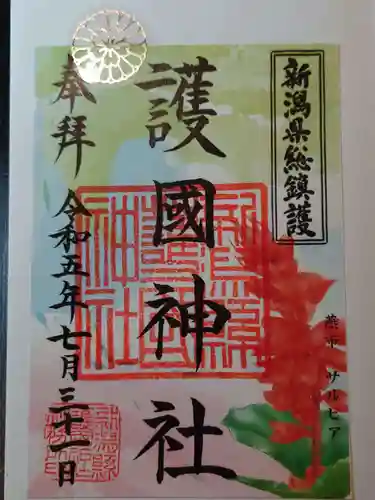 新潟県総鎮護
護國神社
奉拝
令和五年七月三十一日
燕市 サルビア